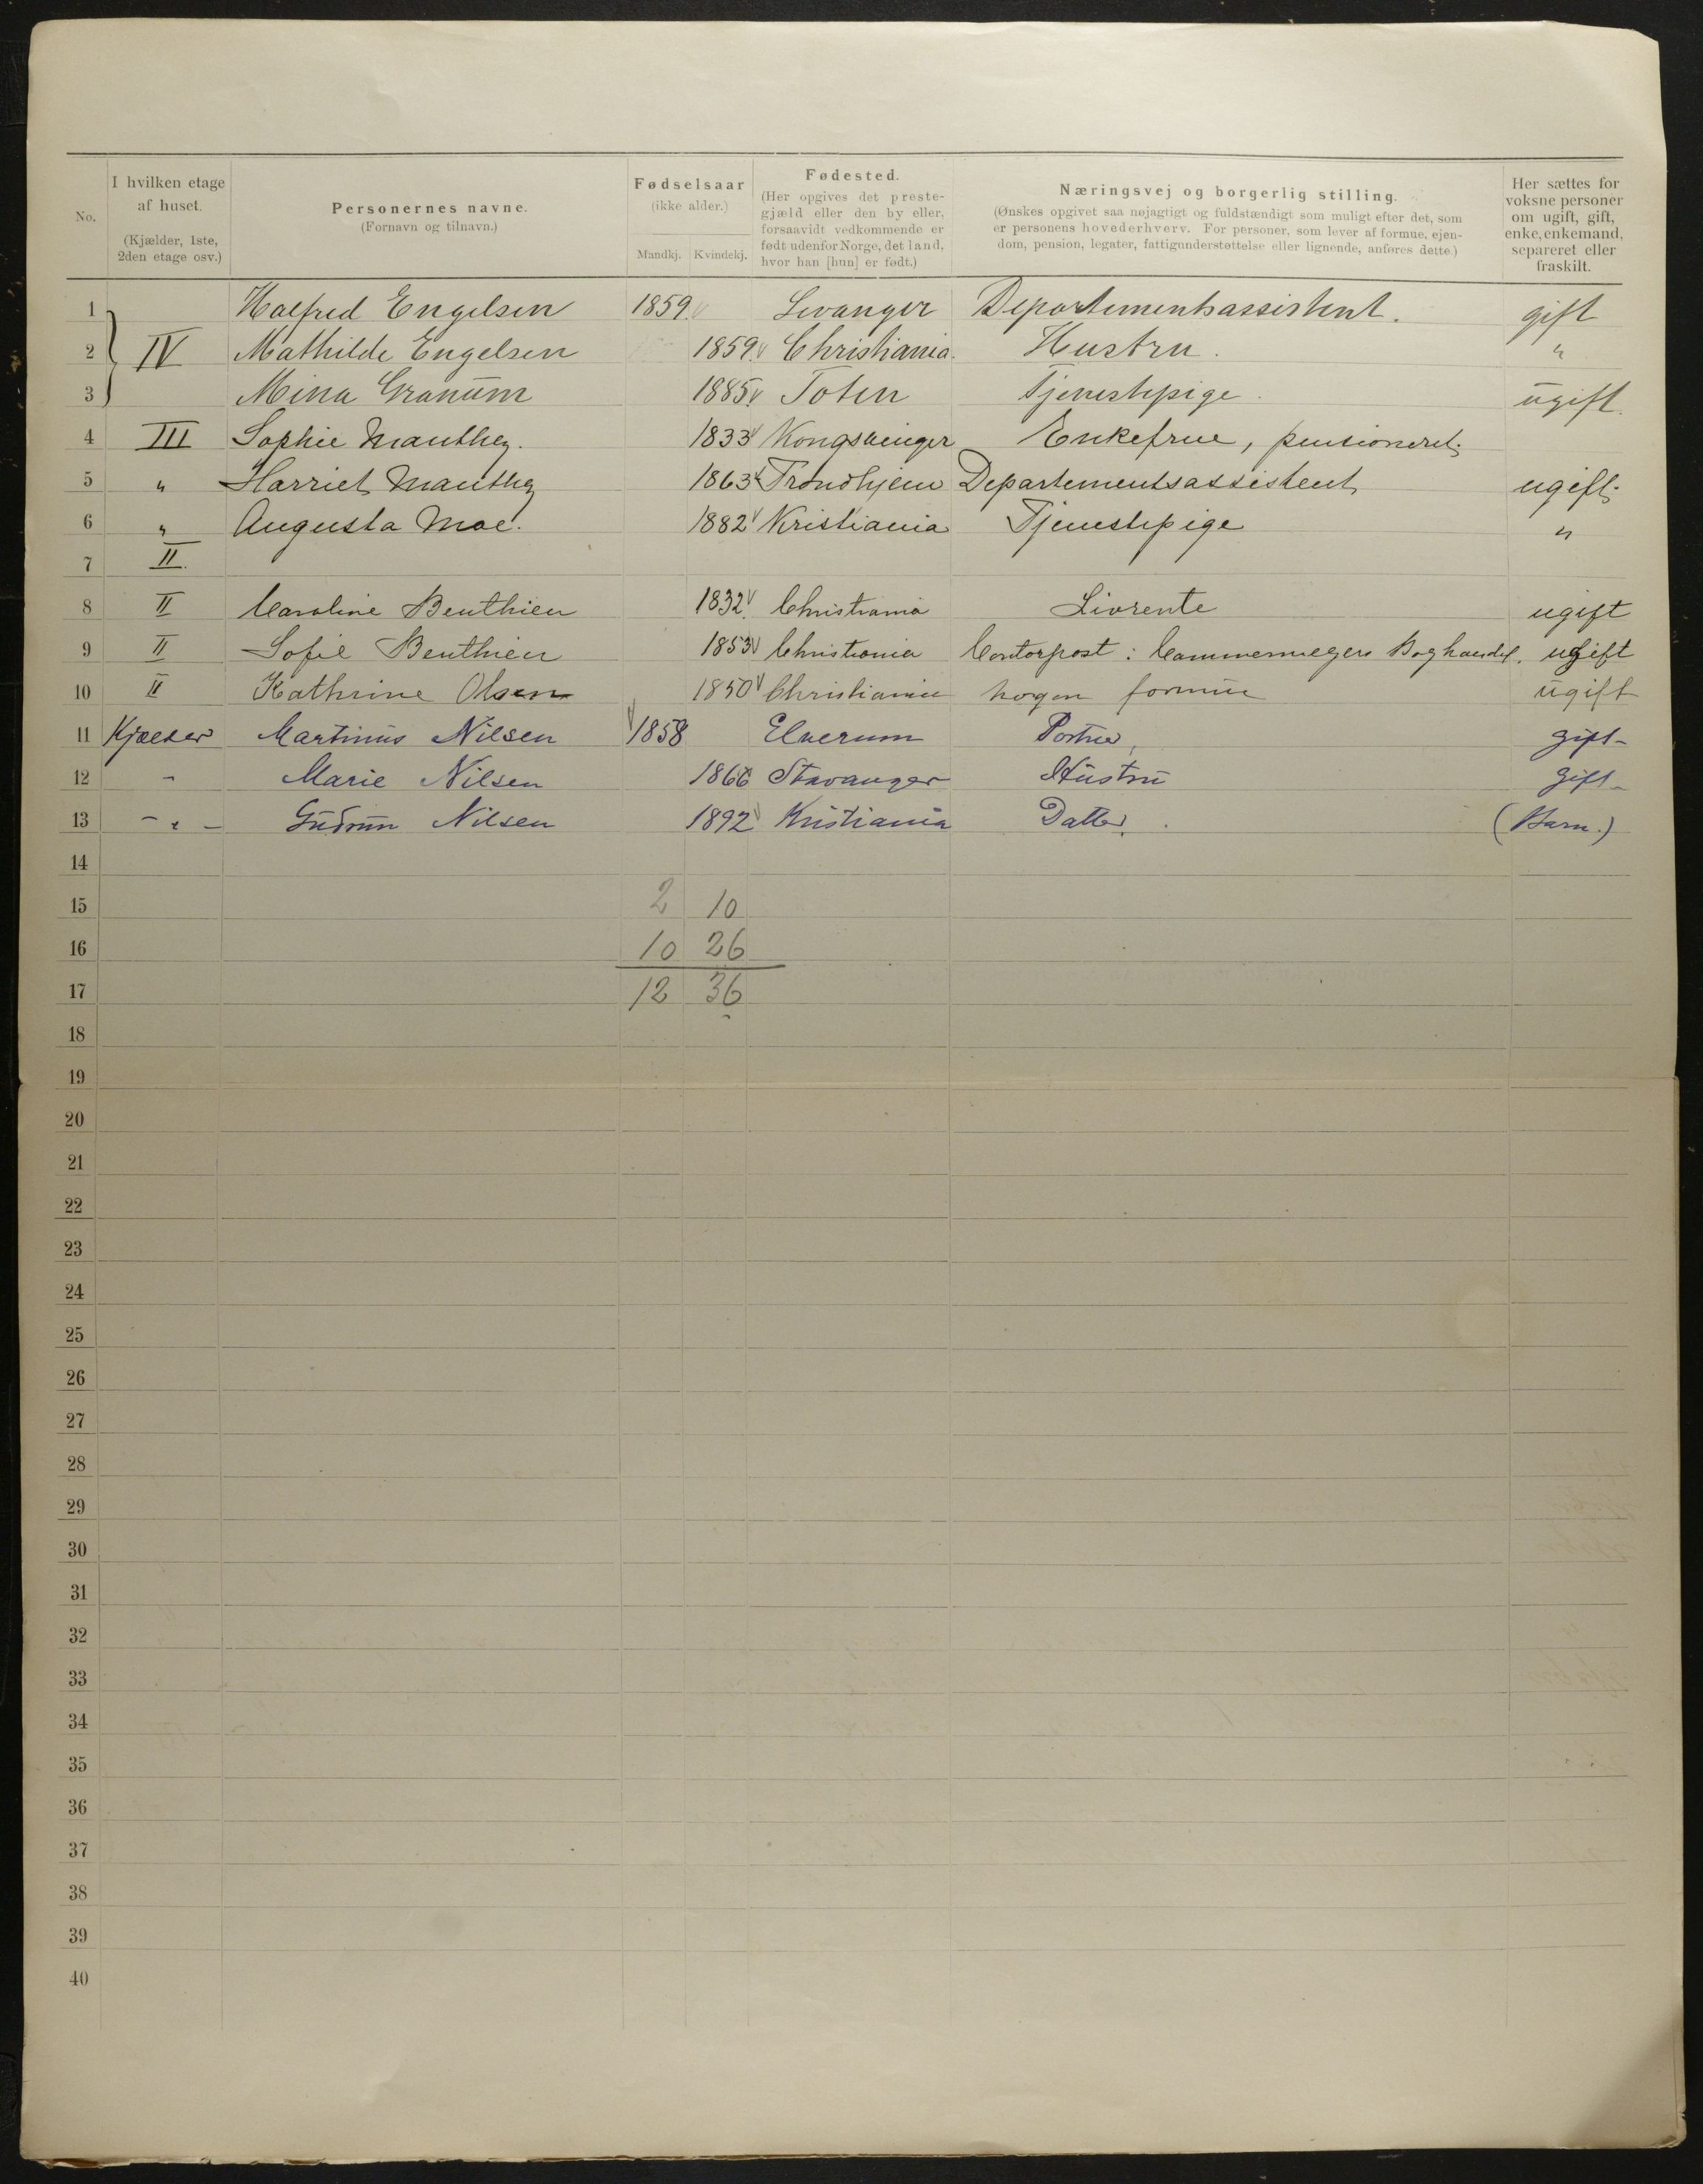 No. I hvilken etage af huset. (Kjælder, 1ste, 2den etage osv.) Personernes navne. (Fornavn og tilnavn.) Fødselsaar (ikke alder.) Mandkj. Kvindekj. Fødested. (Her opgives det prestegjæld eller den by eller, forsaavidt vedkommende er født udenfor Norge, det land, hvor han [hun] er født.) Næringsvej og borgerlig stilling. (Ønskes opgivet saa nøjagtigt og fuldstændigt som muligt efter det, som er personens hovederhverv. For personer, som lever af formue, ejendom, pension, legater, fattigunderstøttelse eller lignende, anføres dette.) Her sættes for voksne personer om ugift, gift, enke, enkemand, separeret eller fraskilt.
1 Halfred Engelsen 1859. Levanger Departementsassistent. gift
2 IV Mathilde Engelsen 1859. Christiania. Hustru. "
3 Mina Granum 1885. Toten Tjenestepige. ugift.
4 III Sophie Manthey. 1833 Kongsvinger Enkefrue, pensioneret.
5 " Harriet Manthey 1863 Trondhjem Departementsassistent ugift.
6 " Augusta Moe. 1882 Kristiania Tjenestepige "
7 II.
8 II Caroline Benthien 1832. Christiania Livrente ugift
9 II Sofie Benthien 1853 Christiania Contorpost: Cammermeyers Boghandel. ugift
10 II Kathrine Olsen 1850 Christiania formue ugift
11 Kjælder Martinus Nilsen 1858 Elverum Portner gift
12 - Marie Nilsen 1866 Stavanger Hustru gift
13 - " - Gudrun Nilsen 1892 Kristiania Datter. (Barn.)
14
15 2 10
16 10 26
17 12 36
18
19
20
21
22
23
24
25
26
27
28
29
30
31
32
33
34
35
36
37
38
39
40